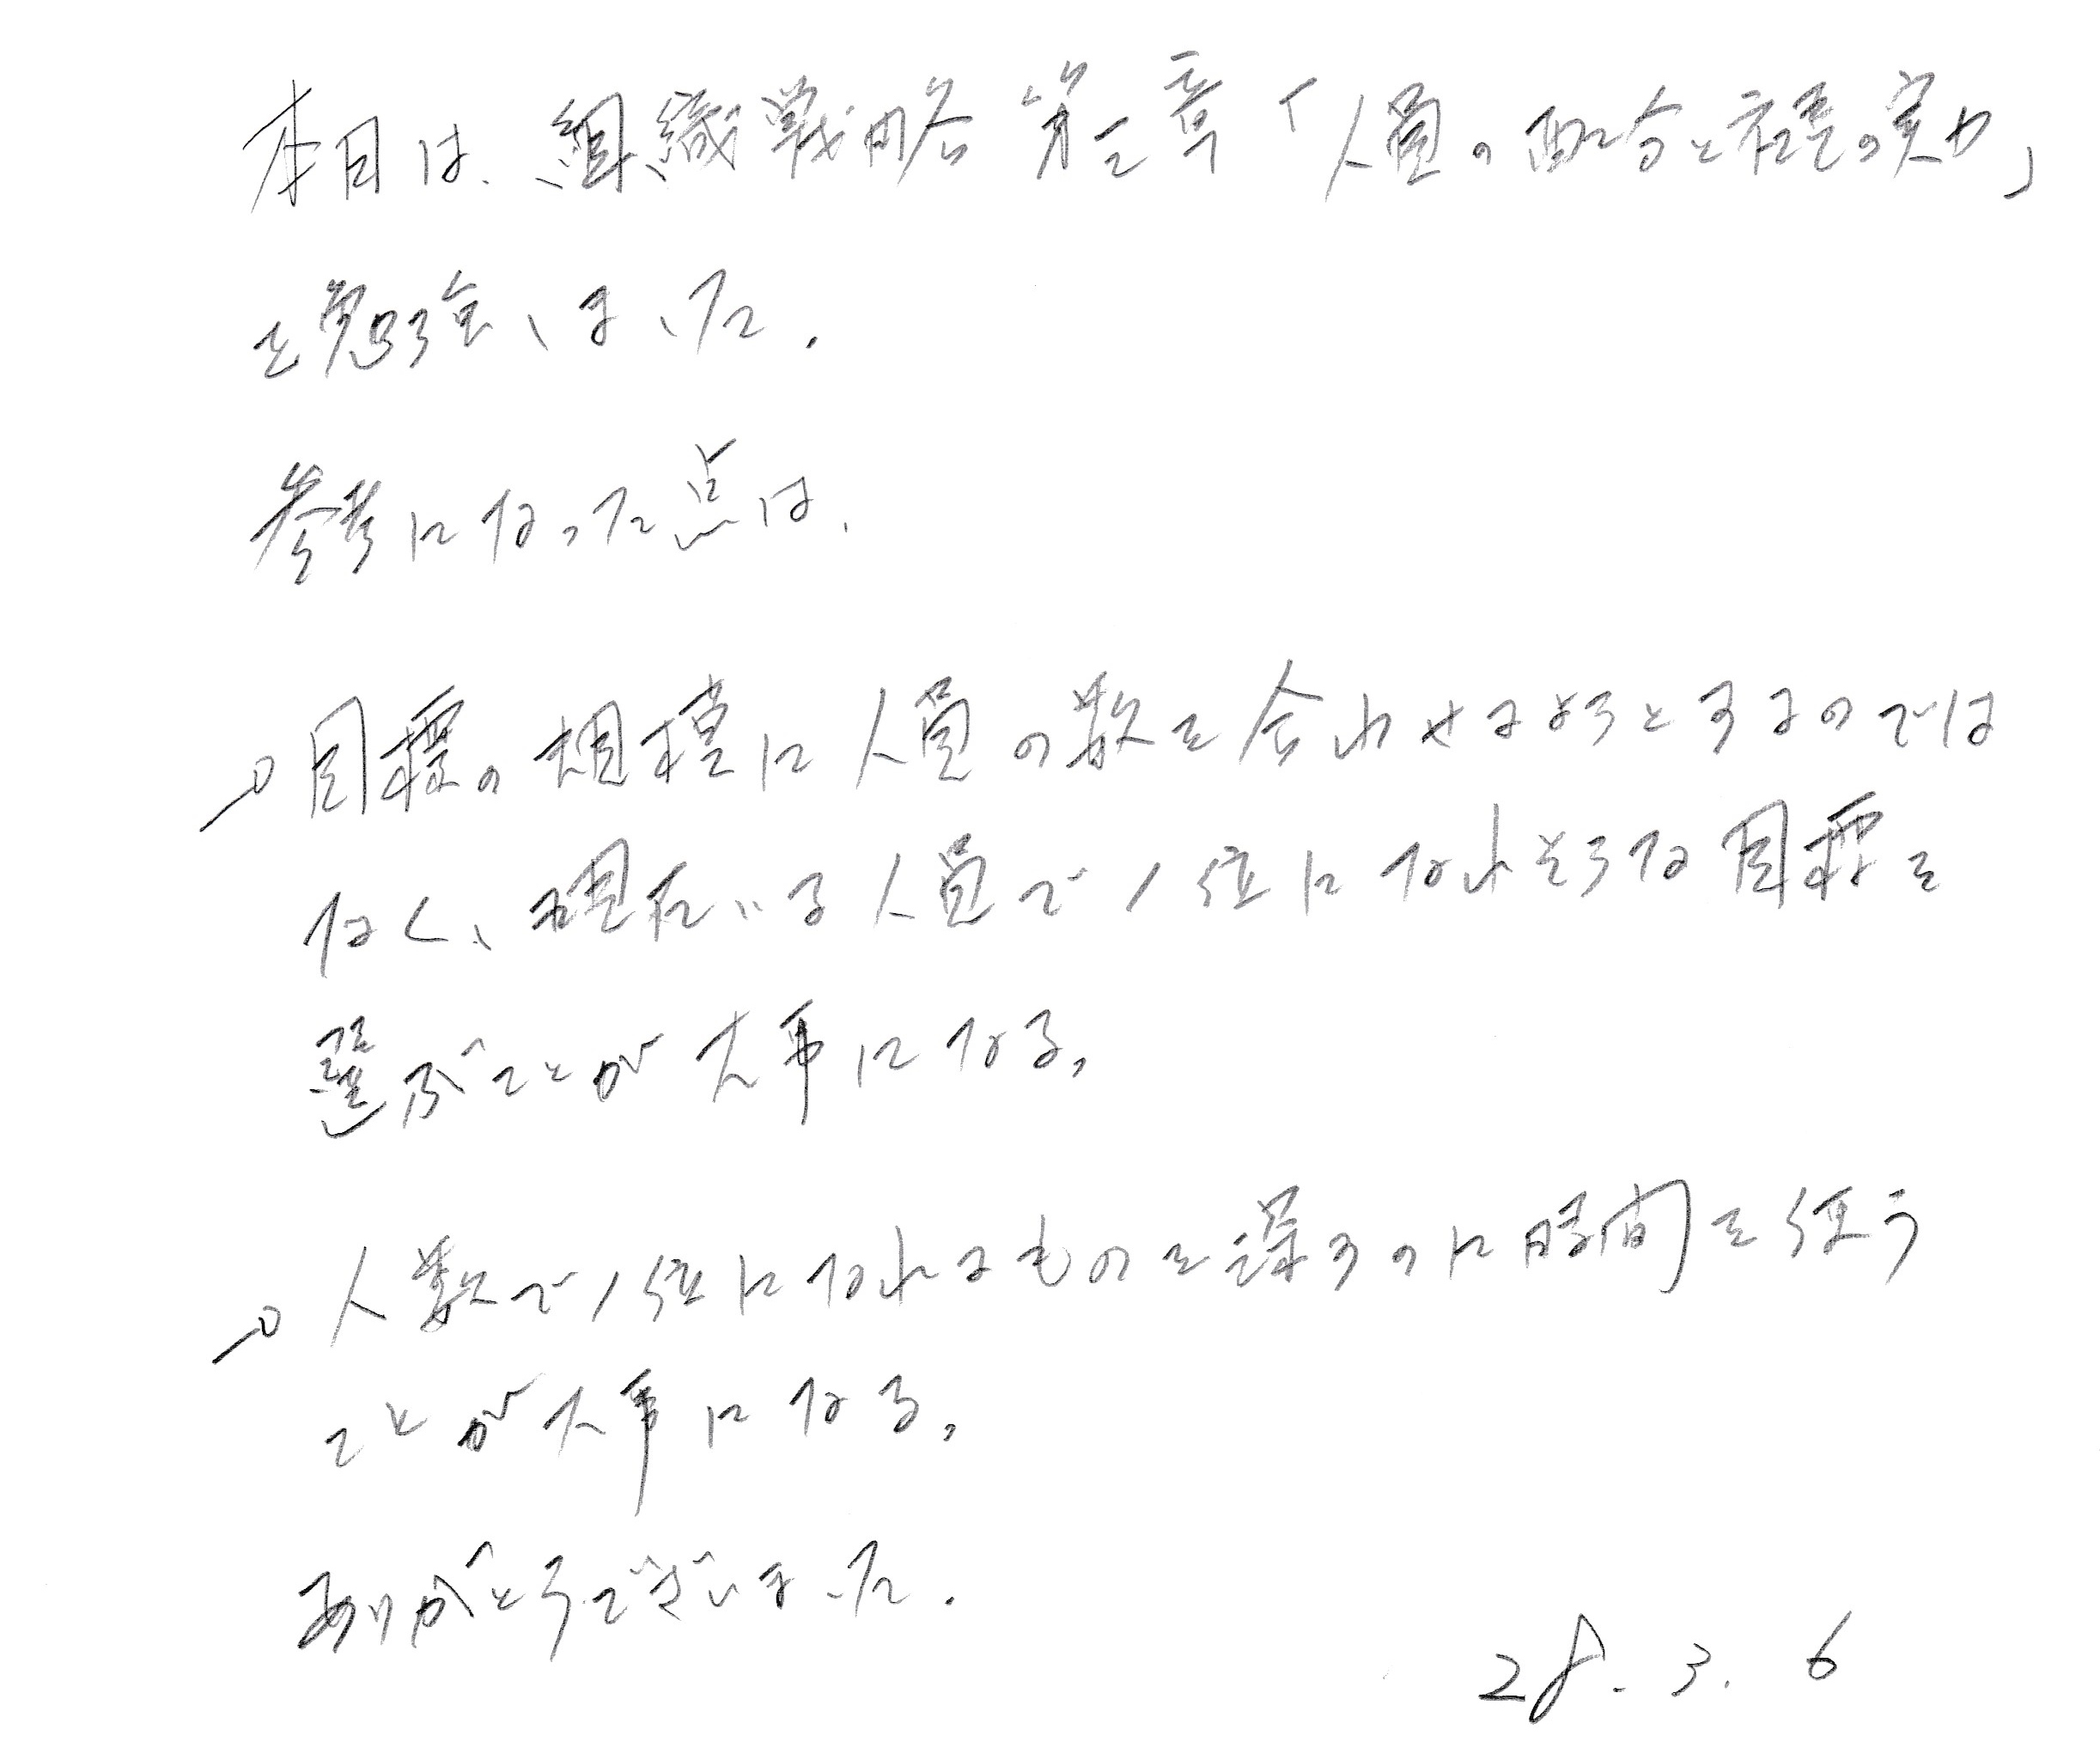 本日は、組織戦略 第二章「人員の配分と社長の実力」
を勉強しました。
参考になった点は、
→目標の規模に人員の数を合わせようとするのでは
なく、現在いる人員で1位になれそうな目標を
選ぶことが大事になる。
→人数で1位になれるものを探すのに時間を使う
ことが大事になる。
ありがとうございました。
28.3.6